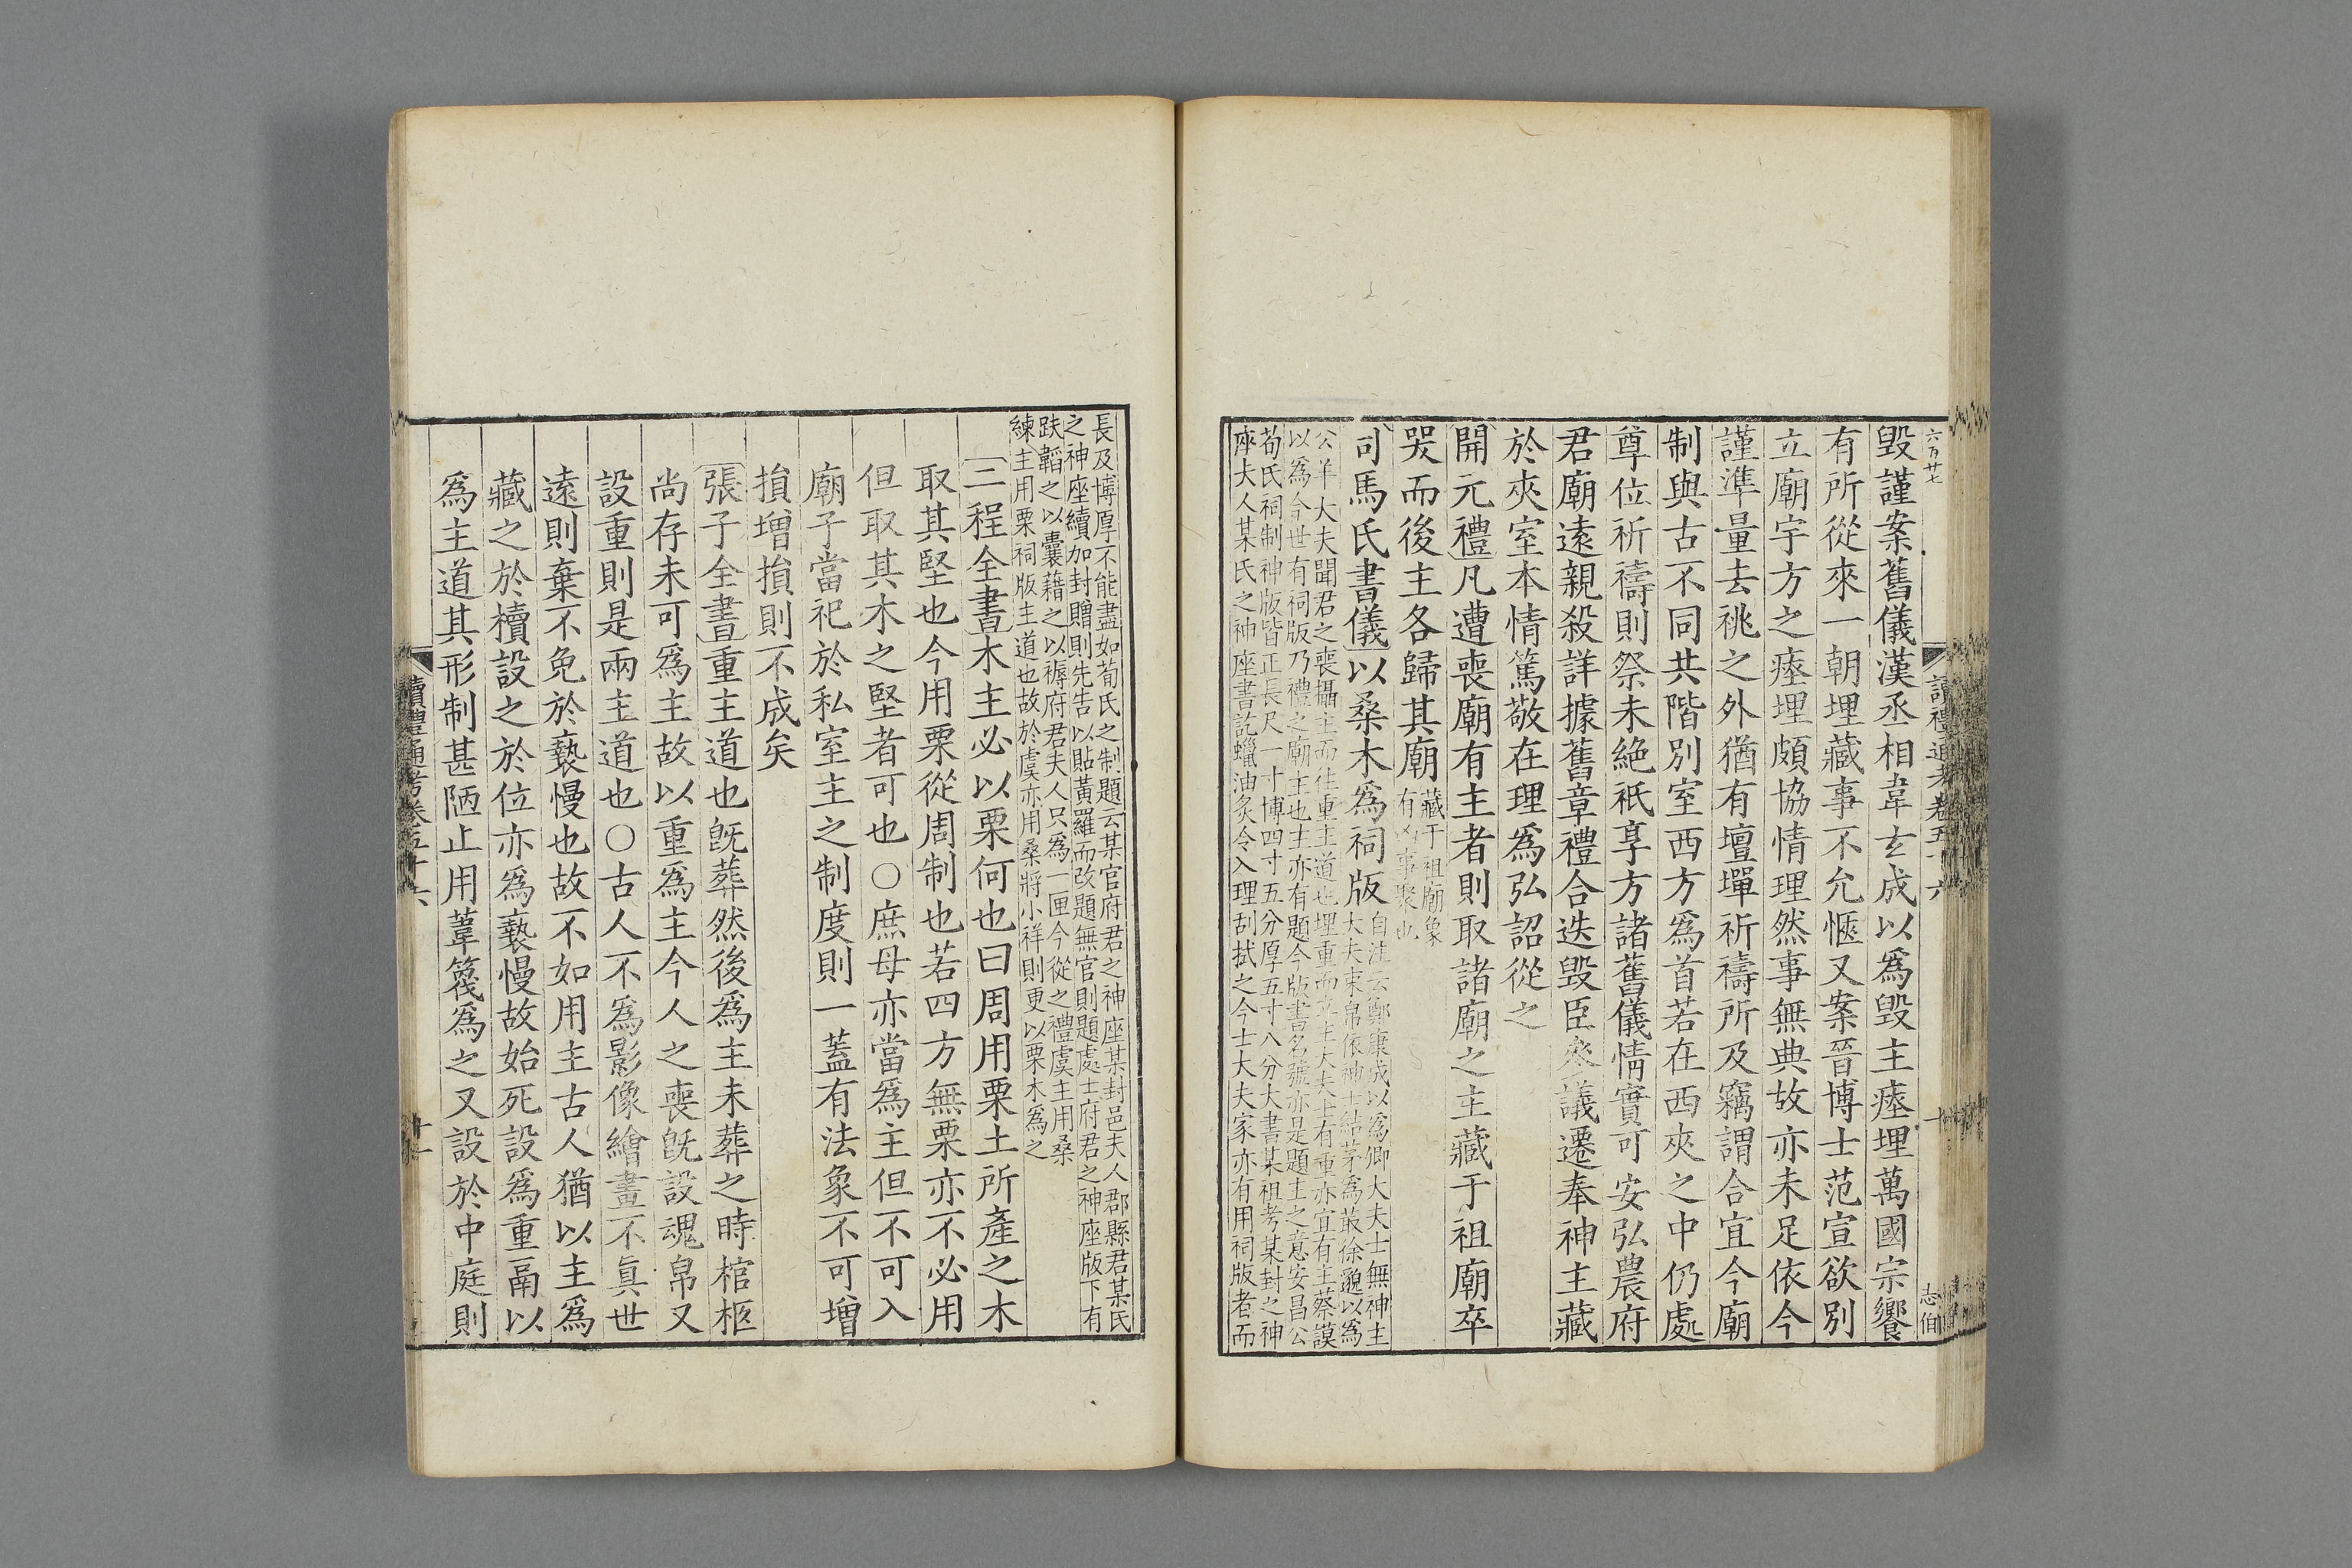 六百廿七
讀禮通考卷五十六
十
志伯
毀謹案舊儀漢丞相韋玄成以爲毀主瘞埋萬國宗饗
有所從來一朝埋藏事不允愜又案晉博士范宣欲別
立廟宇方之瘞埋頗協情理然事無典故亦未足依今
謹準量去祧之外猶有壇墠祈禱所及竊謂合宜今廟
制與古不同共階別室西方爲首若在西夾之中仍處
尊位祈禱則祭未絶祇享方諸舊儀情實可安弘農府
君廟遠親殺詳據舊章禮合迭毀臣等參議遷奉神主藏
於夾室本情篤敬在理爲弘詔從之
開元禮凡遭喪廟有主者則取諸廟之主藏于祖廟卒
哭而後主各歸其廟藏于祖廟象
有凶事聚也
司馬氏書儀以桑木爲祠版自注云鄭康成以爲卿大夫士無神主
大夫束帛依神士結茅爲菆徐邈以爲
公羊大夫聞君之喪攝主而往重主道也埋重而立主大夫士有重亦宜有主蔡謨
以爲今世有祠版乃禮之廟主也主亦有題今版書名號亦是題主之意安昌公
荀氏祠制神版皆正長尺一寸博四寸五分厚五寸八分大書某祖考某封之神
座夫人某氏之神座書訖蠟油炙令入理刮拭之今士大夫家亦有用祠版者而
長及博厚不能盡如荀氏之制題云某官府君之神座某封邑夫人郡縣君某氏
之神座續加封贈則先告以貼黃羅而改題無官則題處士府君之神座版下有
趺韜之以囊藉之以褥府君夫人只爲一匣今從之禮虞主用桑
練主用栗祠版主道也故於虞亦用桑將小祥則更以栗木爲之
二程全書木主必以栗何也曰周用栗土所產之木
取其堅也今用栗從周制也若四方無栗亦不必用
但取其木之堅者可也○庶母亦當爲主但不可入
廟子當祀於私室主之制度則一蓋有法象不可增
損增損則不成矣
張子全書重主道也旣葬然後爲主未葬之時棺柩
尚存未可爲主故以重爲主今人之喪旣設魂帛又
設重則是兩主道也○古人不爲影像繪畫不眞世
遠則棄不免於褻慢也故不如用主古人猶以主爲
藏之於櫝設之於位亦爲褻慢故始死設爲重鬲以
爲主道其形制甚陋止用葦篾爲之又設於中庭則
讀禮通考卷五十六
十一